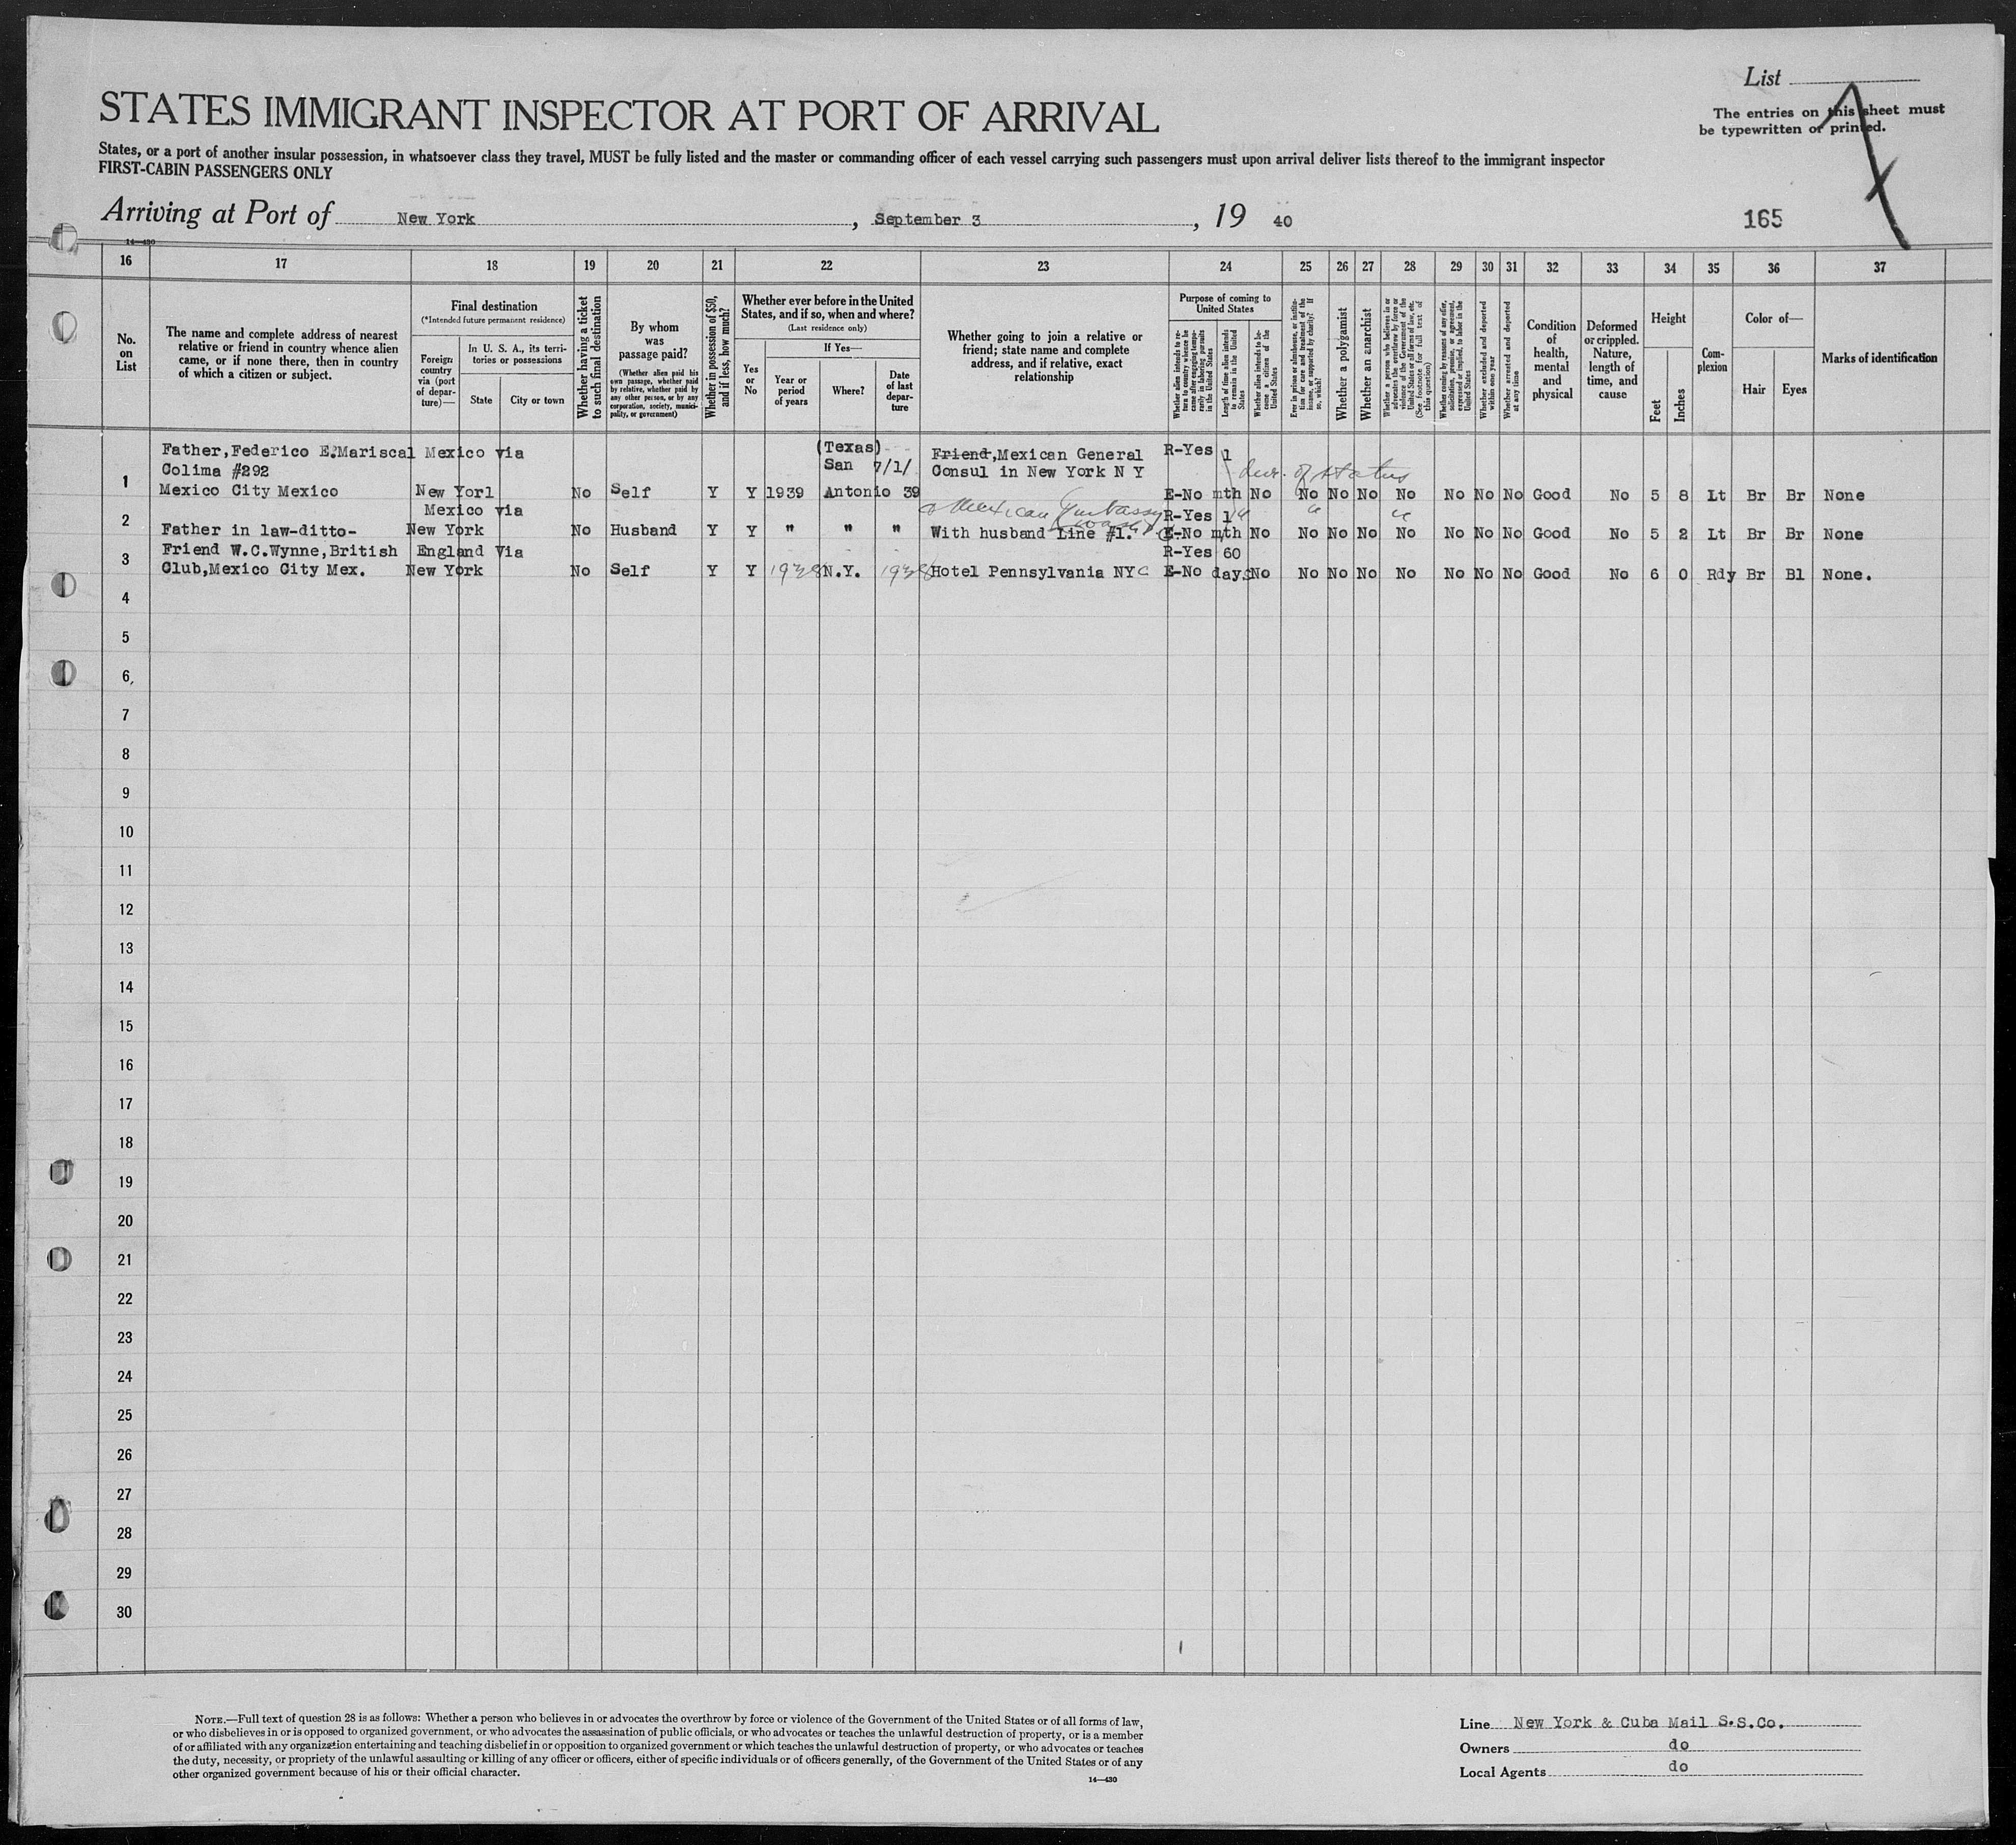 List
STATES IMMIGRANT INSPECTOR AT PORT OF ARRIVAL
The entries on this sheet must
be typewritten or printed.
States, or a port of another insular possession, in whatsoever class they travel, MUST be fully listed and the master or commanding officer of each vessel carrying such passengers must upon arrival deliver lists thereof to the immigrant inspector
FIRST-CABIN PASSENGERS ONLY
Arriving at Port of New York, September 3, 19 40
165
14—430
16 17 18 19 20 21 22 23 24 25 26 27 28 29 30 31 32 33 34 35 36 37
No. on List
The name and complete address of nearest
relative or friend in country whence alien
came, or if none there, then in country
of which a citizen or subject.
Final destination
(*Intended future permanent residence)
Foreign country via (port of departure)—
In U. S. A., its territories or possessions
State
City or town
Whether having a ticket to such final destination
By whom was passage paid?
(Whether alien paid his own passage, whether paid by relative, whether paid by any other person, or by any corporation, society, municipality, or government)
Whether in possession of $50, and if less, how much?
Whether ever before in the United States, and if so, when and where?
(Last residence only)
Yes or No
If Yes—
Year or period of years
Where?
Date of last departure
Whether going to join a relative or friend; state name and complete address, and if relative, exact relationship
Purpose of coming to United States
Whether alien intends to return to country whence he came after engaging temporarily in laboring pursuits in the United States
Length of time alien intends to remain in the United States
Whether alien intends to become a citizen of the United States
Ever in prison or almshouse, or institution for care and treatment of the insane, or supported by charity? If so, which?
Whether a polygamist
Whether an anarchist
Whether a person who believes in or advocates the overthrow by force or violence of the Government of the United States or all forms of law, etc. (See footnote for full text of this question)
Whether coming by reasons of any offer, solicitation, promise, or agreement, expressed or implied, to labor in the United States
Whether excluded and deported within one year
Whether arrested and deported at any time
Condition of health, mental and physical
Deformed or crippled. Nature, length of time, and cause
Height
Feet
Inches
Complexion
Color of—
Hair
Eyes
Marks of identification
Father,Federico E.Mariscal Mexico via (Texas) Friend,Mexican General R-Yes 1
Colima #292 San 7/1/ Consul in New York N Y
1 Mexico City Mexico New Yorl No Self Y Y 1939 Antonio 39 E-No mth No No No No No No No No Good No 5 8 Lt Br Br None
of status
Mexican Embassy
Mexico via R-Yes 1
2 Father in law-ditto- New York No Husband Y Y " " " With husband Line #1. E-No mth No No No No No No No No Good No 5 2 Lt Br Br None
Friend W.C.Wynne,British England Via R-Yes 60
3 Club,Mexico City Mex. New York No Self Y Y 1938 N.Y. 1938 Hotel Pennsylvania NYC E-No days No No No No No No No No Good No 6 0 Rdy Br Bl None.
4
5
6
7
8
9
10
11
12
13
14
15
16
17
18
19
20
21
22
23
24
25
26
27
28
29
30
NOTE.—Full text of question 28 is as follows: Whether a person who believes in or advocates the overthrow by force or violence of the Government of the United States or of all forms of law,
or who disbelieves in or is opposed to organized government, or who advocates the assassination of public officials, or who advocates or teaches the unlawful destruction of property, or is a member
of or affiliated with any organization entertaining and teaching disbelief in or opposition to organized government or which teaches the unlawful destruction of property, or who advocates or teaches
the duty, necessity, or propriety of the unlawful assaulting or killing of any officer or officers, either of specific individuals or of officers generally, of the Government of the United States or of any
other organized government because of his or their official character.
14—430
Line New York & Cuba Mail S.S.Co.
Owners do
Local Agents do